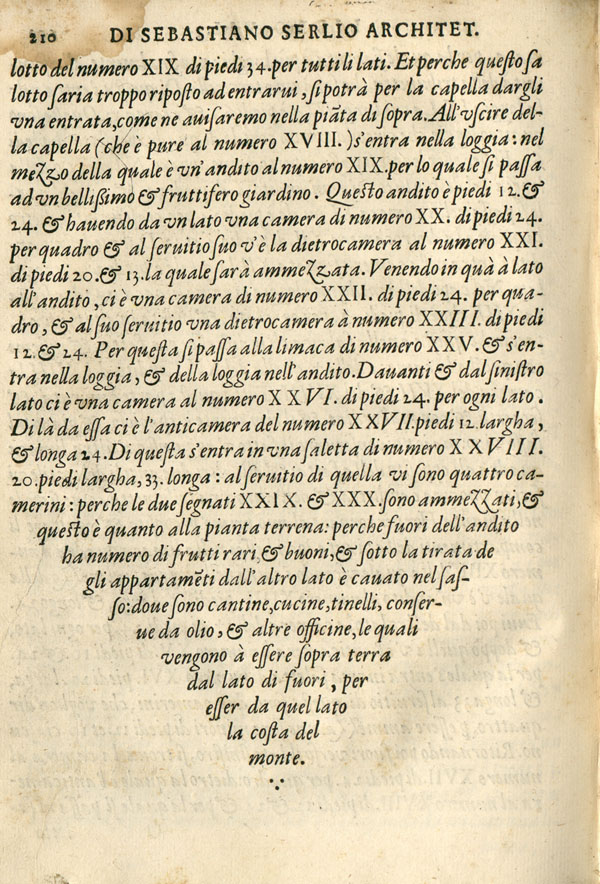 210 DI SEBASTIANO SERLIO ARCHITET.
lotto del numero XIX di piedi 34. per tutti li lati. Et perche questo sa
lotto saria troppo riposto ad entrarui, si potrà per la capella dargli
vna entrata, come ne auisaremo nella piãta di sopra. All'vscire del-
la capella (che è pure al numero XVIII.) s'entra nella loggia: nel
mezzo della quale è vn'andito al numero XIX. per lo quale si passa
ad vn bellissimo & fruttifero giardino. Questo andito è piedi 12. &
24. & hauendo da vn lato vna camera di numero XX. di piedi 24.
per quadro & al seruitio suo v'è la dietrocamera al numero XXI.
di piedi 20. & 13. la quale sarà ammezzata. Venendo in quà à lato
all'andito, ci è vna camera di numero XXII. di piedi 24. per qua-
dro, & al suo seruitio vna dietrocamera à numero XXIII. di piedi
12. & 24. Per questa si passa alla limaca di numero XXV. & s'en-
tra nella loggia, & della loggia nell'andito. Dauanti & dal sinistro
lato ci è vna camera al numero XXVI. di piedi 24. per ogni lato.
Di là da essa ci è l'anticamera del numero XXVII. piedi 12. largha,
& longa 24. Di questa s'entra in vna saletta di numero XXVIII.
20. piedi largha, 33. longa: al seruitio di quella vi sono quattro ca-
merini: perche le due segnati XXIX. & XXX. sono ammezzati, &
questo è quanto alla pianta terrena: perche fuori dell'andito
ha numero di frutti rari & buoni, & sotto la tirata de
gli appartamẽti dall'altro lato è cauato nel sas-
so: doue sono cantine, cucine, tinelli, conser-
ue da olio, & altre officine, le quali
vengono à essere sopra terra
dal lato di fuori, per
esser da quel lato
la costa del
monte.